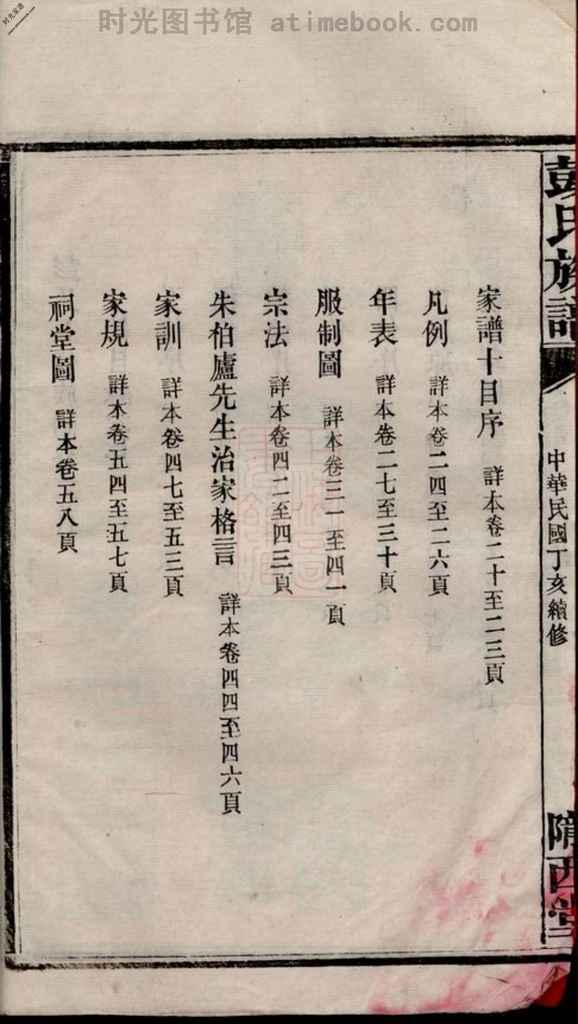 时光图书馆 atimebook.com
时光家谱
彭氏族譜
中華民國丁亥續修
隴西堂
家譜十目序 詳本卷二十至二三頁
凡例 詳本卷二四至二六頁
年表 詳本卷二七至三十頁
服制圖 詳本卷三一至四一頁
宗法 詳本卷四二至四三頁
朱柏廬先生治家格言 詳本卷四四至四六頁
家訓 詳本卷四七至五三頁
家規 詳本卷五四至五七頁
祠堂圖 詳本卷五八頁